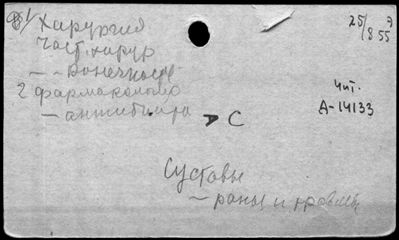 1 Хирургия
Част. хирур
— — Конечности
2 Фармакология
— антибиотики
25/8 55
Чит.
А-14133
А С
Суставы
— раны и травмы